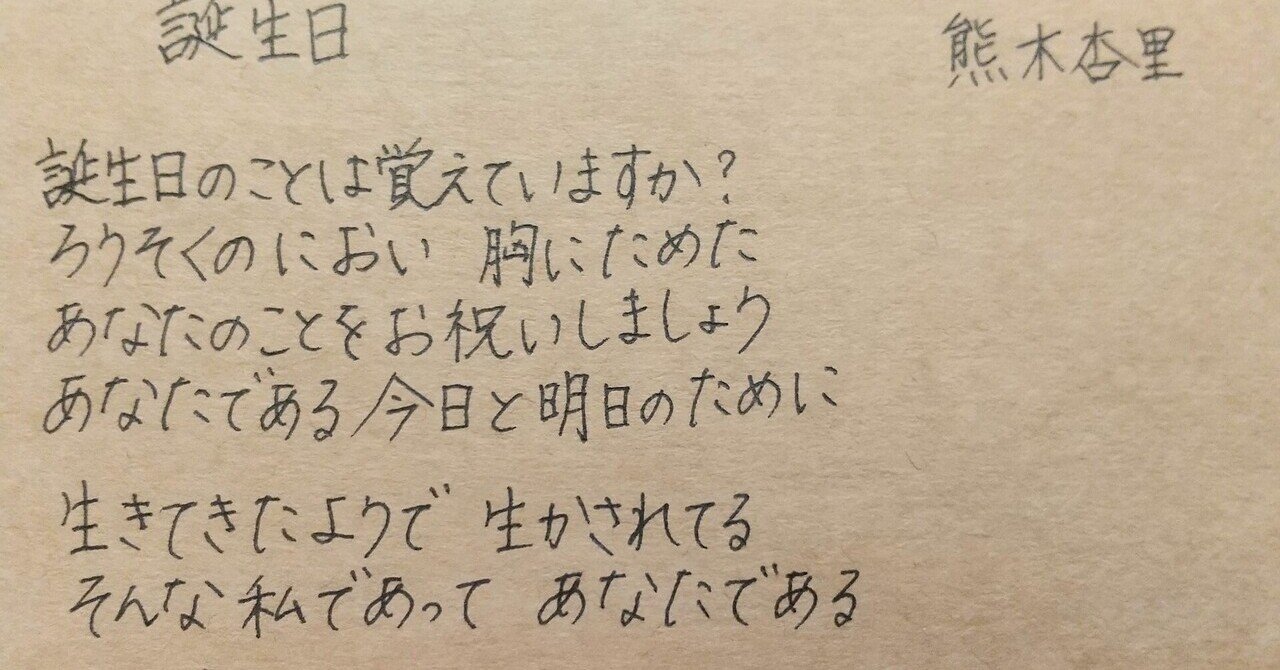 誕生日 熊木杏里
誕生日のことは覚えていますか?
ろうそくのにおい 胸にためた
あなたのことをお祝いしましょう
あなたである今日と明日のために
生きてきたようで 生かされてる
そんな私であって あなたである